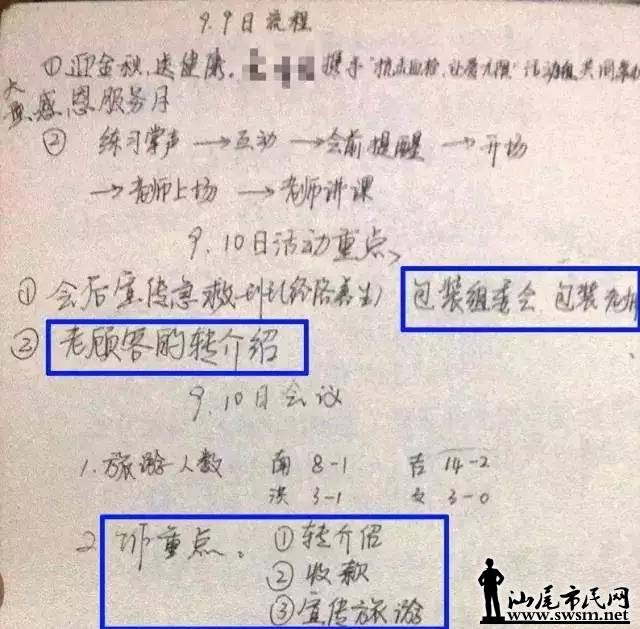 9.9日流程
①迎金秋,送健康. 携手"抗击血栓,让爱无限"活动组共同举办
大型感恩服务月
② 练习掌声→互动→会前提醒→开场
→老师上场→老师讲课
9.10日活动重点
① 会后宣传急救 包装组委会 包装老师
② 老顾客的转介绍
9.10日会议
1.旅游人数 南 8-1 吉 14-2
洪 3-1 文 3-0
2. 重点。①转介绍
②收款
③宣传旅游
汕尾市民网
www.swsm.net